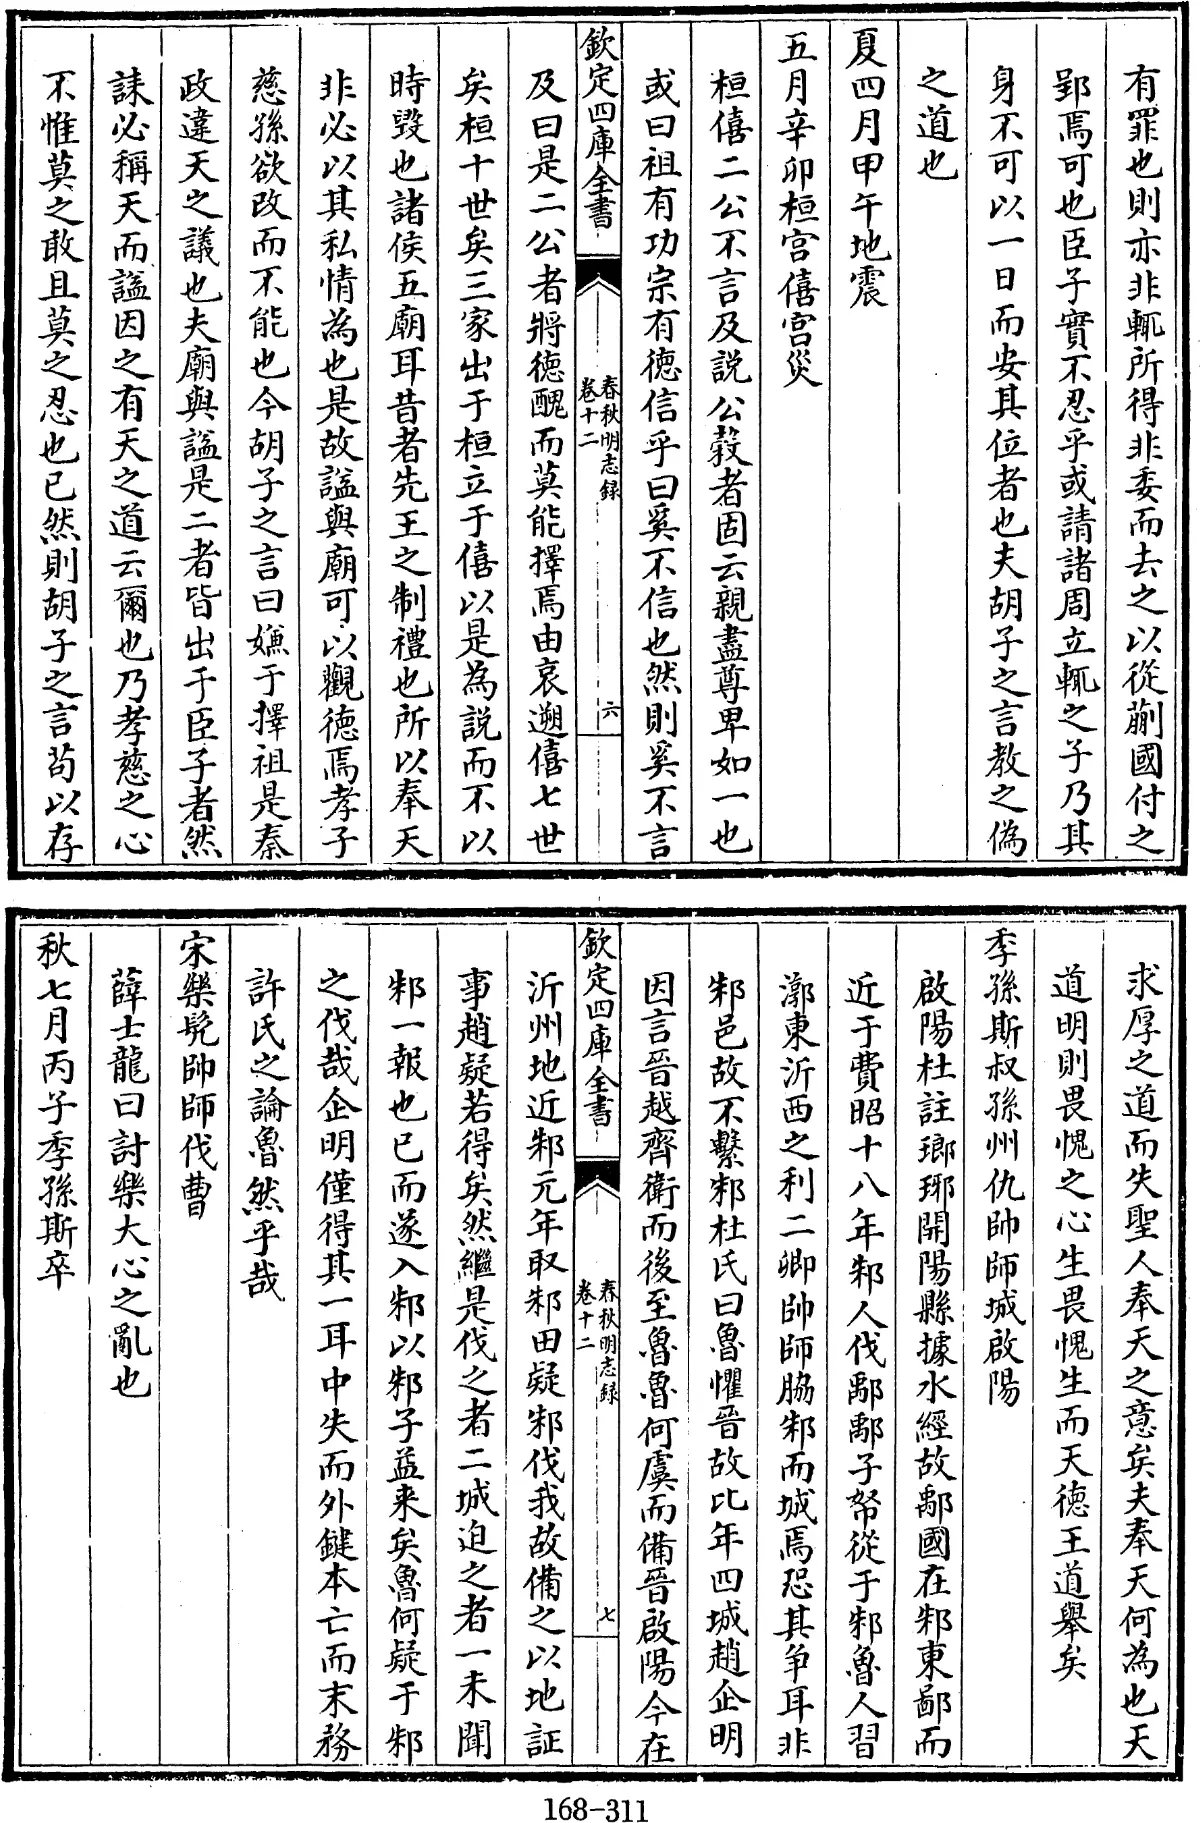 有罪也則亦非輒所得非委而去之以從蒯國付之
郢焉可也臣子實不忍乎或請諸周立輒之子乃其
身不可以一日而安其位者也夫胡子之言教之偽
之道也
夏四月甲午地震
五月辛卯桓宮僖宮災
桓僖二公不言及說公穀者固云親盡尊卑如一也
或曰祖有功宗有德信乎曰奚不信也然則奚不言
欽定四庫全書
春秋明志錄
卷十二
六
及曰是二公者將德醜而莫能擇焉由哀遡僖七世
矣桓十世矣三家出于桓立于僖以是為說而不以
時毀也諸侯五廟耳昔者先王之制禮也所以奉天
非必以其私情為也是故諡與廟可以觀德焉孝子
慈孫欲改而不能也今胡子之言曰嫌于擇祖是秦
政違天之議也夫廟與諡是二者皆出于臣子者然
誄必稱天而諡因之有天之道云爾也乃孝慈之心
不惟莫之敢且莫之忍也已然則胡子之言茍以存
求厚之道而失聖人奉天之意矣夫奉天何為也天
道明則畏愧之心生畏愧生而天德王道舉矣
季孫斯叔孫州仇帥師城啟陽
啟陽杜註瑯琊開陽縣據水經故鄅國在邾東鄙而
近于費昭十八年邾人伐鄅鄅子帑從于邾魯人習
漷東沂西之利二卿帥師脇邾而城焉恐其爭耳非
邾邑故不繫邾杜氏曰魯懼晉故比年四城趙企明
因言晉越齊衛而後至魯魯何虞而備晉啟陽今在
欽定四庫全書
春秋明志錄
卷十二
七
沂州地近邾元年取邾田疑邾伐我故備之以地証
事趙疑若得矣然繼是伐之者二城迫之者一未聞
邾一報也已而遂入邾以邾子益来矣魯何疑于邾
之伐哉企明僅得其一耳中失而外鍵本亡而末務
許氏之論魯然乎哉
宋樂髡帥師伐曹
薛士龍曰討樂大心之亂也
秋七月丙子季孫斯卒
168-311